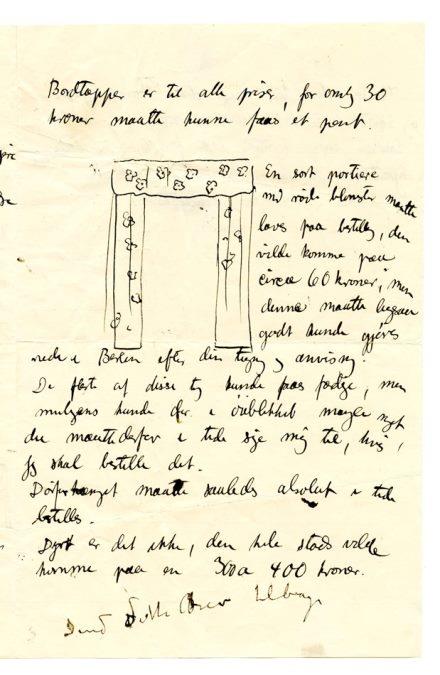 Bordtæpper er til alle priser, for omtr 30
kroner maatte kunne faaes et pent.
En sort portiere
med røde blomster maatte
laves paa bestilling, den
vilde komme paa
circa 60 kroner, men
denne maatte
godt kunde gjøres
nede i Berlin efter din tegning og anvisning.
De fleste af disse ting kunde faaes færdige, men
muligens kunde der i øieblikket mangle noget
du maatte derfor i tide sige mig til, hvis
jeg skal bestille det.
maatte saaledes absolut i tide
bestilles.
Dyrt er det ikke, den hele stads vilde
komme paa en 300 a 400 kroner.
Din